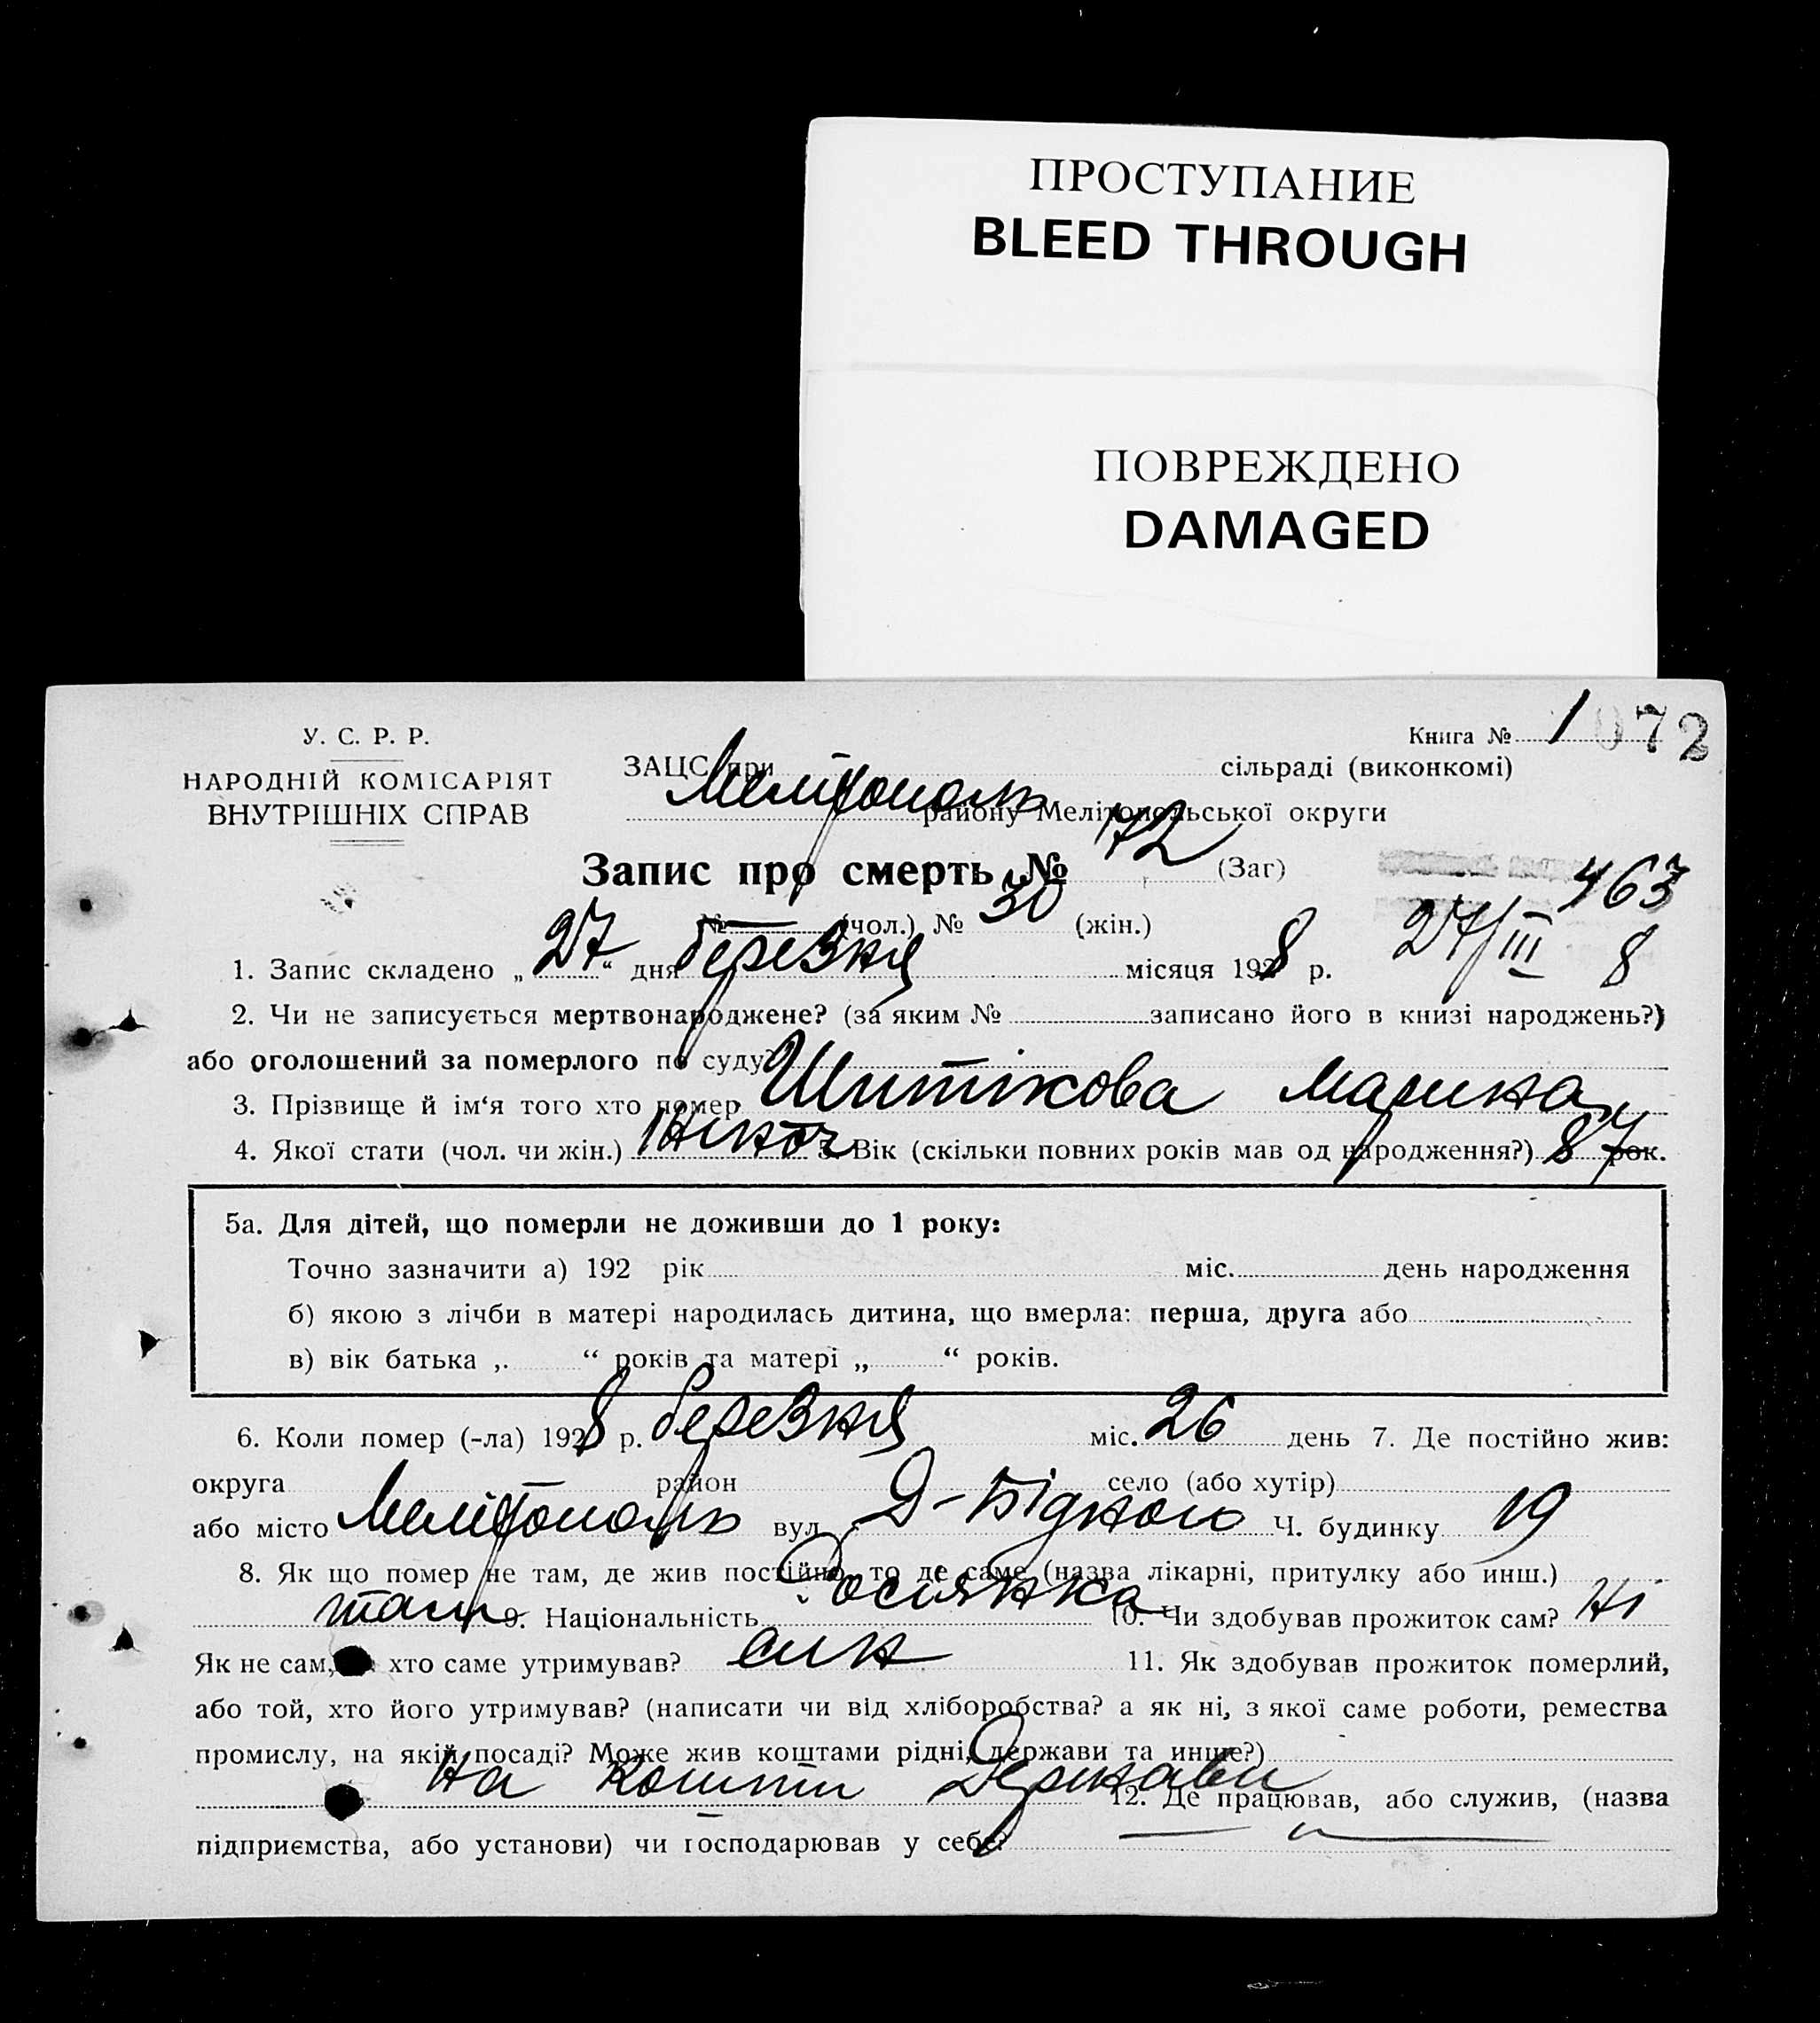 ПРОСТУПАНИЕ
BLEED THROUGH
ПОВРЕЖДЕНО
DAMAGED
У. С. Р. Р.
НАРОДНІЙ КОМІСАРІЯТ
ВНУТРІШНІХ СПРАВ
Книга № 1 072
ЗАЦС при сільраді (виконкомі)
Мелітополь району Мелітопольської округи
Запис про смерть № 172 (Заг)
463
№ — (чол.) № 30 (жін.)
27/III 8
1. Запис складено „27“ дня березня місяця 1928 р.
2. Чи не записується мертвонароджене? (за яким № записано його в книзі народжень?)
або оголошений за померлого по суду?
3. Прізвище й ім‘я того хто помер Шитікова Марина
4. Якої стати (чол. чи жін.) жіноч 5. Вік (скільки повних років мав од народження?) 87 рок.
5а. Для дітей, що померли не доживши до 1 року:
Точно зазначити а) 192 рік міс. день народження
б) якою з лічби в матері народилась дитина, що вмерла: перша, друга або
в) вік батька „ “ років та матері „ “ років.
6. Коли помер (-ла) 1928 р. березня міс. 26 день 7. Де постійно жив:
округа район село (або хутір)
або місто Мелітополь вул. Д-Бідного Ч. будинку 19
8. Як що помер не там, де жив постійно, то де саме (назва лікарні, притулку або инш.)
там 9. Національність Росіянка 10. Чи здобував прожиток сам? Ні
Як не сам, хто саме утримував? син 11. Як здобував прожиток померлий,
або той, хто його утримував? (написати чи від хліборобства? а як ні, з якої саме роботи, ремества
промислу, на якій посаді? Може жив коштами рідні, держави та инше?)
На кошти Держави 12. Де працював, або служив, (назва
підприємства, або установи) чи господарював у себе?